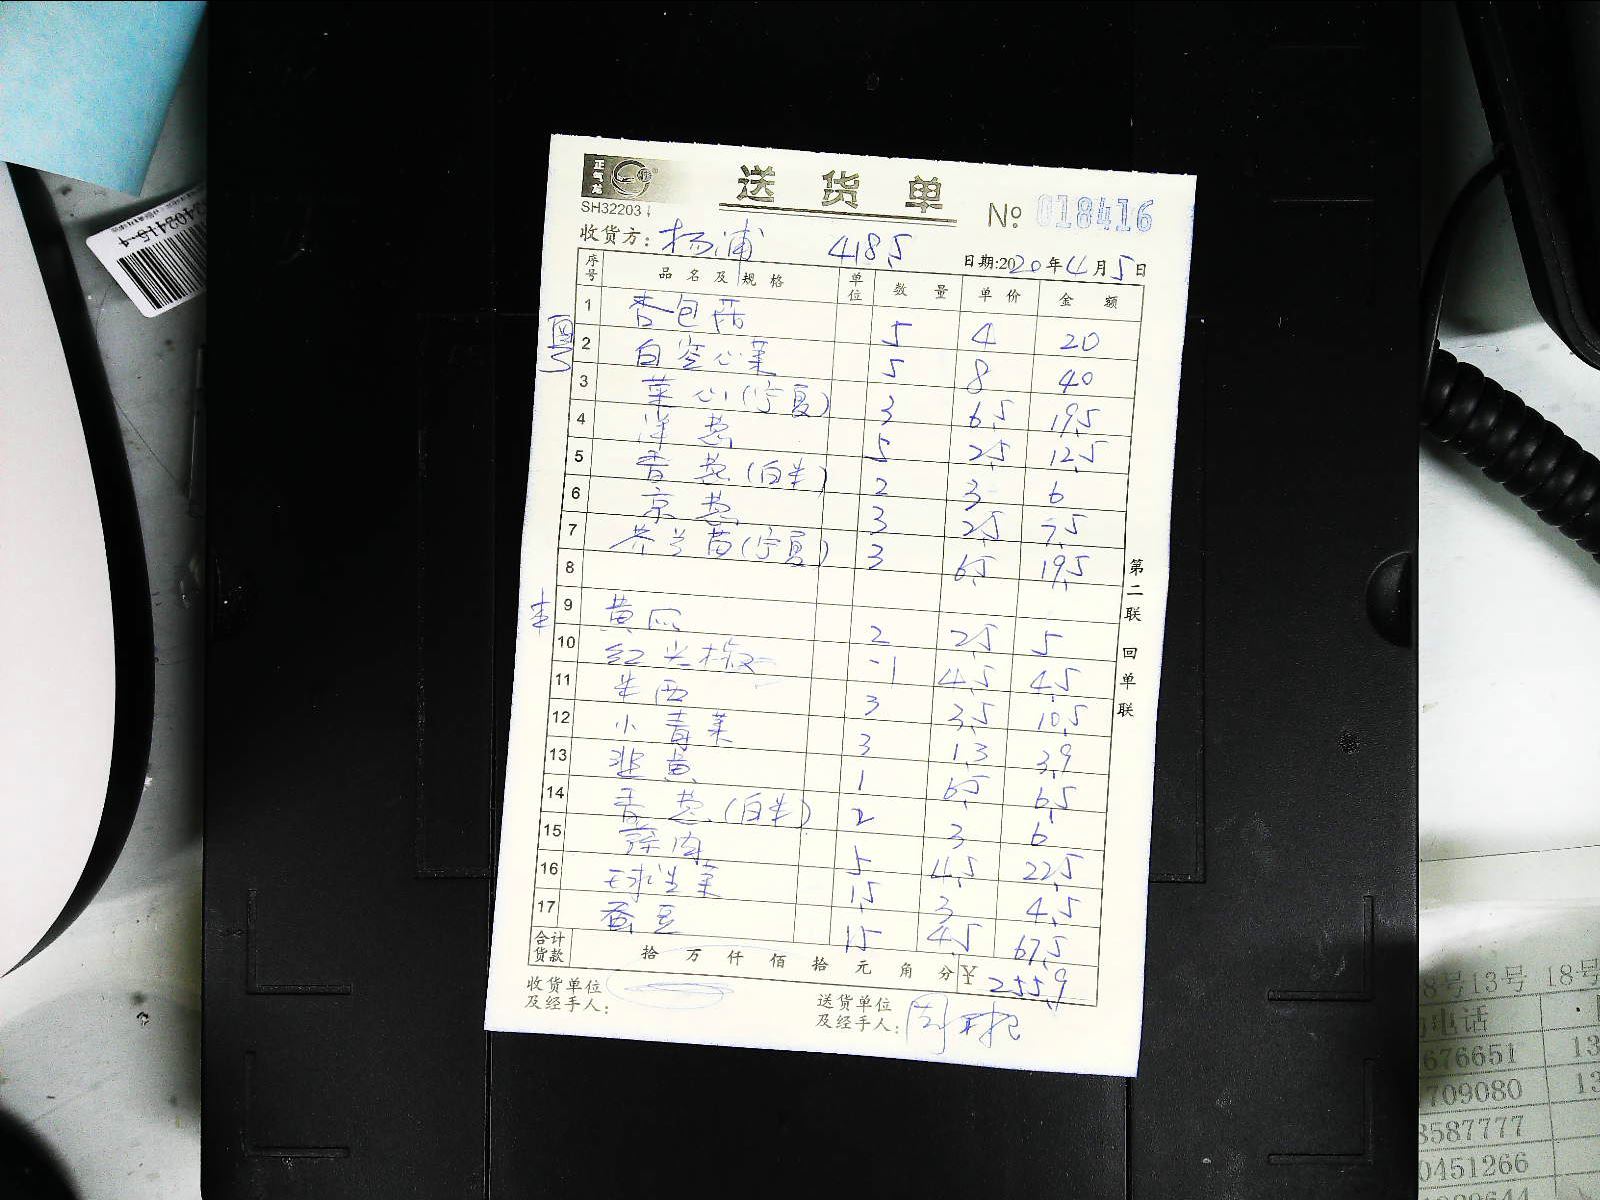 正气龙
SH32203
送货单
№ 018416
收货方: 杨浦 418.5
日期:2020年4月5日
序号 品名及规格 单位 数量 单价 金额
粤
1 杏包菇 5 4 20
2 白空心菜 5 8 40
3 菜心(宁夏) 3 6.5 19.5
4 洋葱 5 2.5 12.5
5 香葱(白半) 2 3 6
6 京葱 3 2.5 7.5
7 芥兰苗(宁夏) 3 6.5 19.5
8
9 黄瓜 2 2.5 5
10 红尖椒 1 4.5 4.5
11 牛西 3 3.5 10.5
12 小青菜 3 1.3 3.9
13 韭黄 1 6.5 6.5
14 香葱(白半) 2 3 6
15 蒜肉 5 4.5 22.5
16 球生菜 1.5 3 4.5
17 蚕豆 15 4.5 67.5
合计货款 拾 万 仟 佰 拾 元 角 分 ¥ 255.9
收货单位及经手人:
送货单位及经手人:
第二联 回单联
8号13号 18号
电话
676651
709080
3587777
0451266